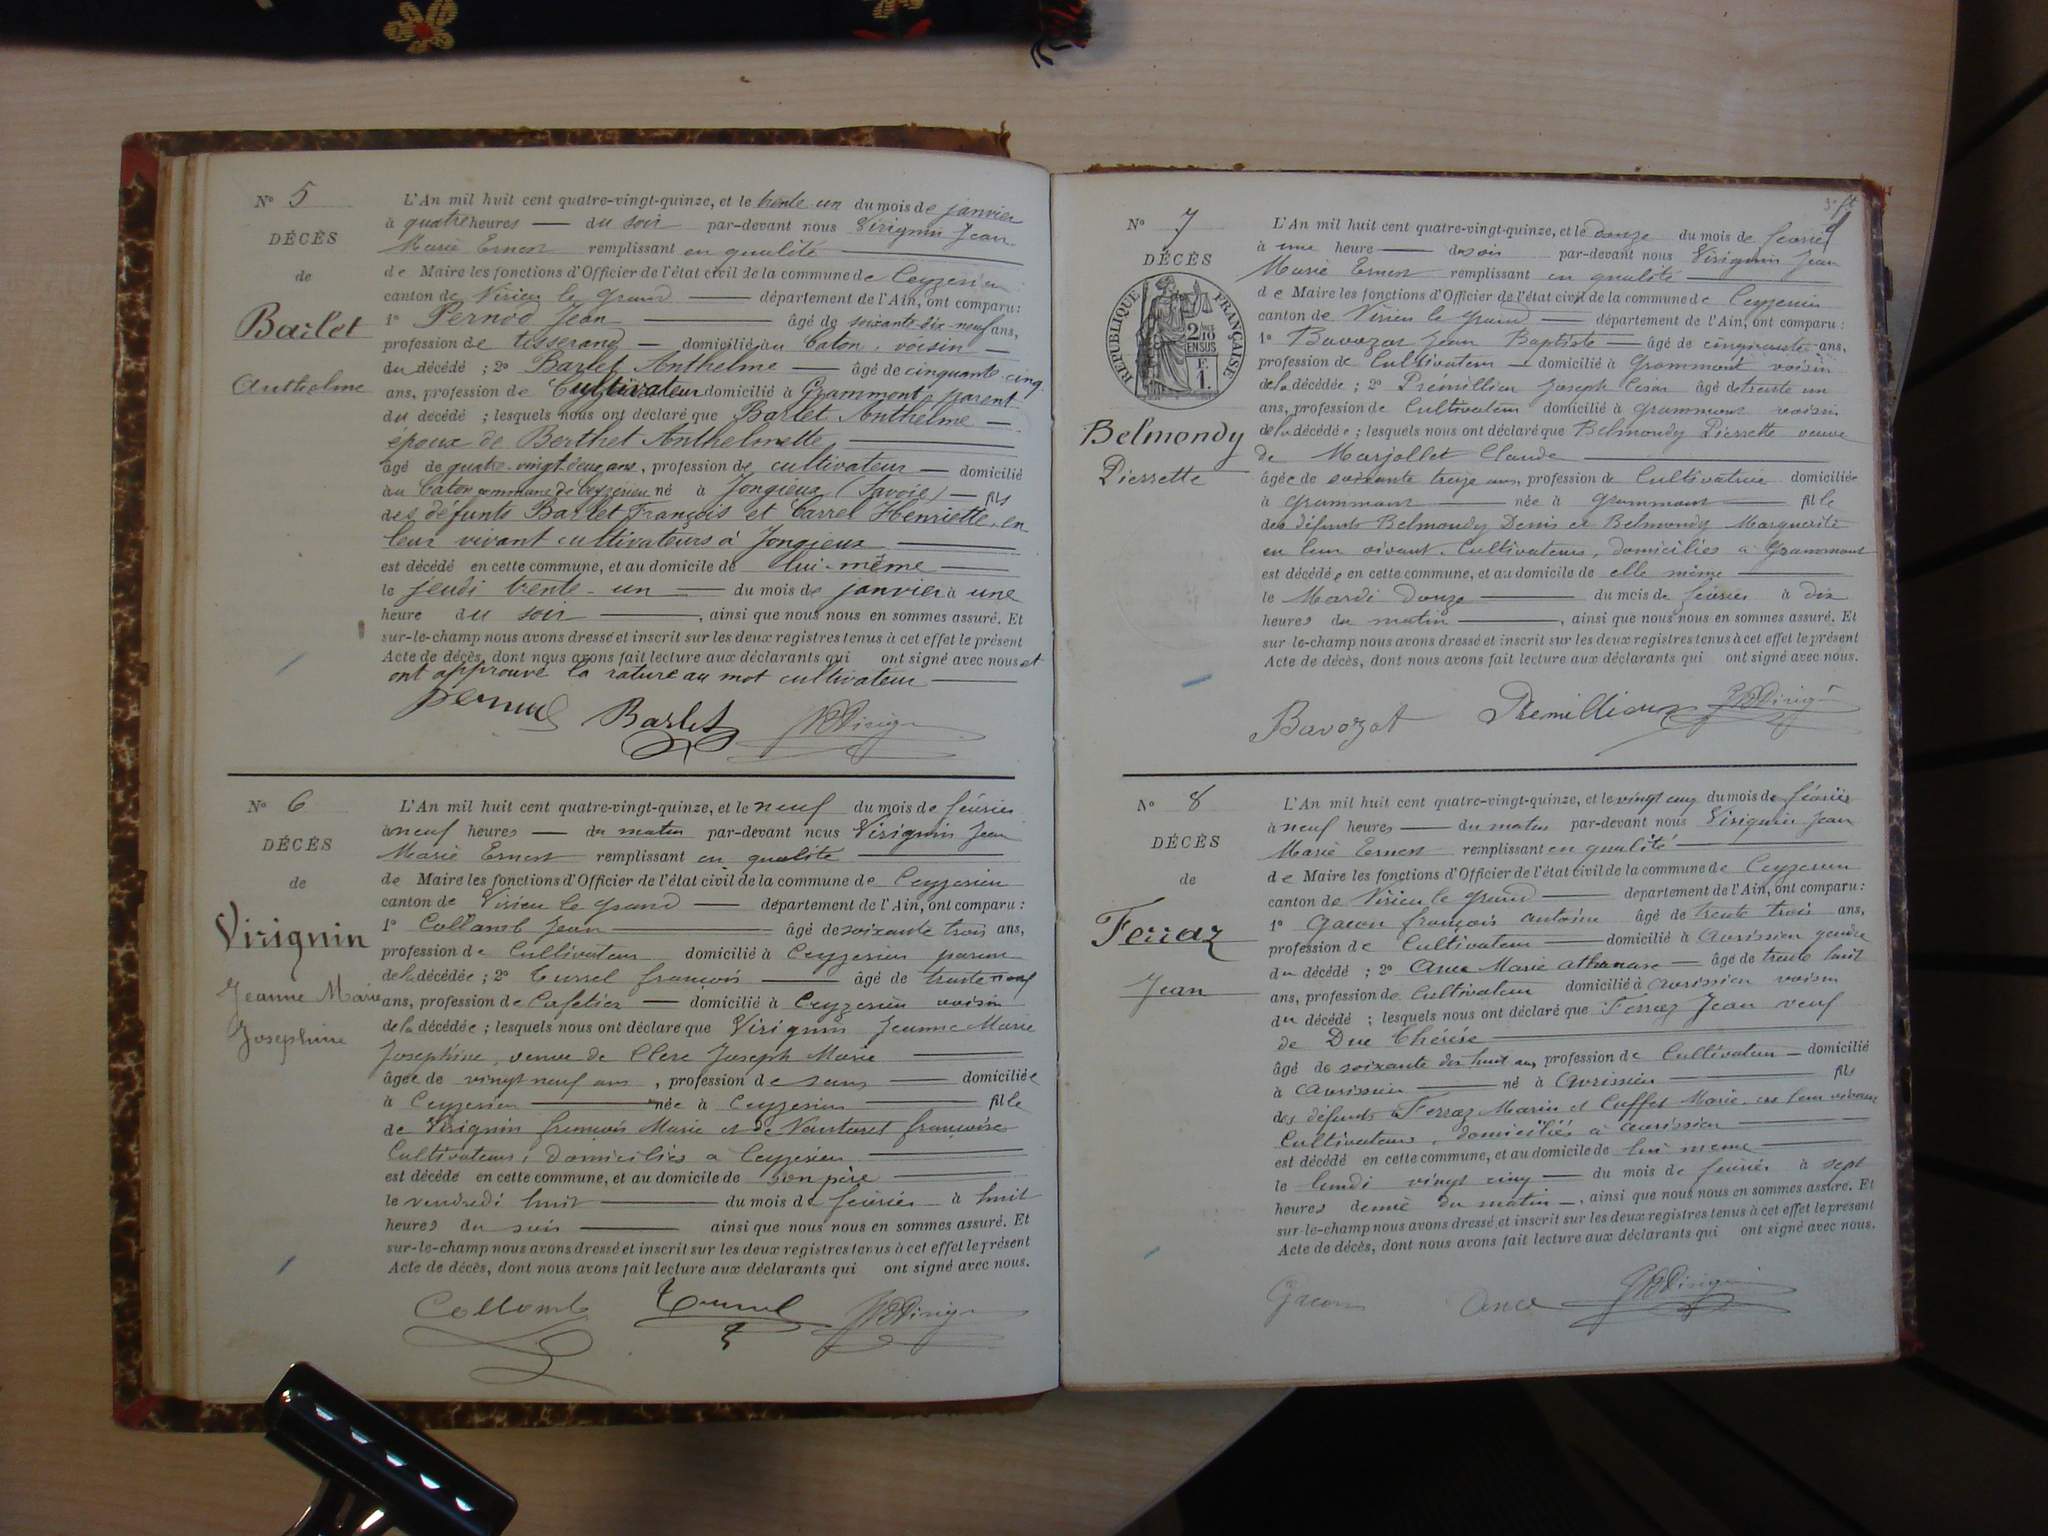 N° 5
DÉCÈS
de
Barlet
Anthelme
L'An mil huit cent quatre-vingt-quinze, et le trente un du mois de janvier
à quatre heures — du soir par-devant nous Virignin Jean
Marie Ernest remplissant en qualité
de Maire les fonctions d'Officier de l'état civil de la commune de Ceyzerieu
canton de Virieu le Grand — département de l'Ain, ont comparu :
1° Pernod Jean — âgé de soixante-dix-neuf ans,
profession de tisserand — domicilié au Caton, voisin —
du décédé ; 2° Barlet Anthelme — âgé de cinquante-cinq
ans, profession de Cultivateur domicilié à Grammont, parent
du décédé ; lesquels nous ont déclaré que Barlet Anthelme —
époux de Berthet Anthelmette
âgé de quatre-vingt-deux ans, profession de cultivateur — domicilié
au Caton commune de Ceyzerieu né à Jongieux (Savoie) — fils
des défunts Barlet François et Carrel Henriette, en
leur vivant cultivateurs à Jongieux
est décédé en cette commune, et au domicile de lui-même
le jeudi trente-un — du mois de janvier à une
heure du soir —, ainsi que nous nous en sommes assuré. Et
sur-le-champ nous avons dressé et inscrit sur les deux registres tenus à cet effet le présent
Acte de décès, dont nous avons fait lecture aux déclarants qui ont signé avec nous et
ont approuvé la rature au mot cultivateur
Barlet
N° 6
DÉCÈS
de
Virignin
Jeanne Marie
Josephine
L'An mil huit cent quatre-vingt-quinze, et le neuf du mois de février
à neuf heures — du matin par-devant nous Virignin Jean
Marie Ernest remplissant en qualité
de Maire les fonctions d'Officier de l'état civil de la commune de Ceyzerieu
canton de Virieu le Grand — département de l'Ain, ont comparu :
1° Collomb Jean — âgé de soixante trois ans,
profession de Cultivateur domicilié à Ceyzerieu parent
de la décédée ; 2° Turrel françois — âgé de trente neuf
ans, profession de Cafetier — domicilié à Ceyzerieu voisin
de la décédée ; lesquels nous ont déclaré que Virignin Jeanne Marie
Josephine, veuve de Clerc Joseph Marie
âgée de vingt neuf ans, profession de sans — domiciliée
à Ceyzerieu — née à Ceyzerieu — fille
de Virignin françois Marie et de françoise
Cultivateurs, domiciliés à Ceyzerieu
est décédé en cette commune, et au domicile de son père
le vendredi huit — du mois de février à huit
heures du soir — ainsi que nous nous en sommes assuré. Et
sur-le-champ nous avons dressé et inscrit sur les deux registres tenus à cet effet le présent
Acte de décès, dont nous avons fait lecture aux déclarants qui ont signé avec nous.
Collomb
N° 7
DÉCÈS
RÉPUBLIQUE FRANÇAISE
2/10 EN SUS
F. 1.
Belmondy
Pierrette
L'An mil huit cent quatre-vingt-quinze, et le douze du mois de février
à une heure — du soir par-devant nous Virignin Jean
Marie Ernest remplissant en qualité
de Maire les fonctions d'Officier de l'état civil de la commune de Ceyzerieu
canton de Virieu le Grand — département de l'Ain, ont comparu :
1° Bavozat Jean Baptiste — âgé de cinquante ans,
profession de Cultivateur — domicilié à Grammont voisin
de la décédée ; 2° Premillieu Joseph âgé de trente un
ans, profession de Cultivateur domicilié à Grammont voisin
de la décédée ; lesquels nous ont déclaré que Belmondy Pierrette veuve
de Marjollet Claude
âgée de soixante treize ans, profession de Cultivatrice domiciliée
à Grammont — née à Grammont — fille
des défunts Belmondy Denis et Belmondy Marguerite
en leur vivant Cultivateurs, domiciliés à Grammont
est décédée en cette commune, et au domicile de elle même
le Mardi douze — du mois de février à dix
heures du matin —, ainsi que nous nous en sommes assuré. Et
sur-le-champ nous avons dressé et inscrit sur les deux registres tenus à cet effet le présent
Acte de décès, dont nous avons fait lecture aux déclarants qui ont signé avec nous.
Bavozat Premillieu
N° 8
DÉCÈS
de
Ferraz
Jean
L'An mil huit cent quatre-vingt-quinze, et le vingt cinq du mois de février
à neuf heures — du matin par-devant nous Virignin Jean
Marie Ernest remplissant en qualité
de Maire les fonctions d'Officier de l'état civil de la commune de Ceyzerieu
canton de Virieu le Grand — département de l'Ain, ont comparu :
1° Gacon françois antoine âgé de trente trois ans,
profession de Cultivateur — domicilié à Avrissieu gendre
du décédé ; 2° Ance Marie athanase — âgé de trente huit
ans, profession de Cultivateur domicilié à Avrissieu voisin
du décédé ; lesquels nous ont déclaré que Ferraz Jean veuf
de Duc Thérèse
âgé de soixante dix huit ans, profession de Cultivateur — domicilié
à Avrissieu — né à Avrissieu — fils
des défunts Ferraz Marin et Cuffet Marie en leur vivant
Cultivateurs, domiciliés à Avrissieu
est décédé en cette commune, et au domicile de lui même
le lundi vingt cinq — du mois de février à sept
heures demie du matin —, ainsi que nous nous en sommes assuré. Et
sur-le-champ nous avons dressé et inscrit sur les deux registres tenus à cet effet le présent
Acte de décès, dont nous avons fait lecture aux déclarants qui ont signé avec nous.
Gacon Ance